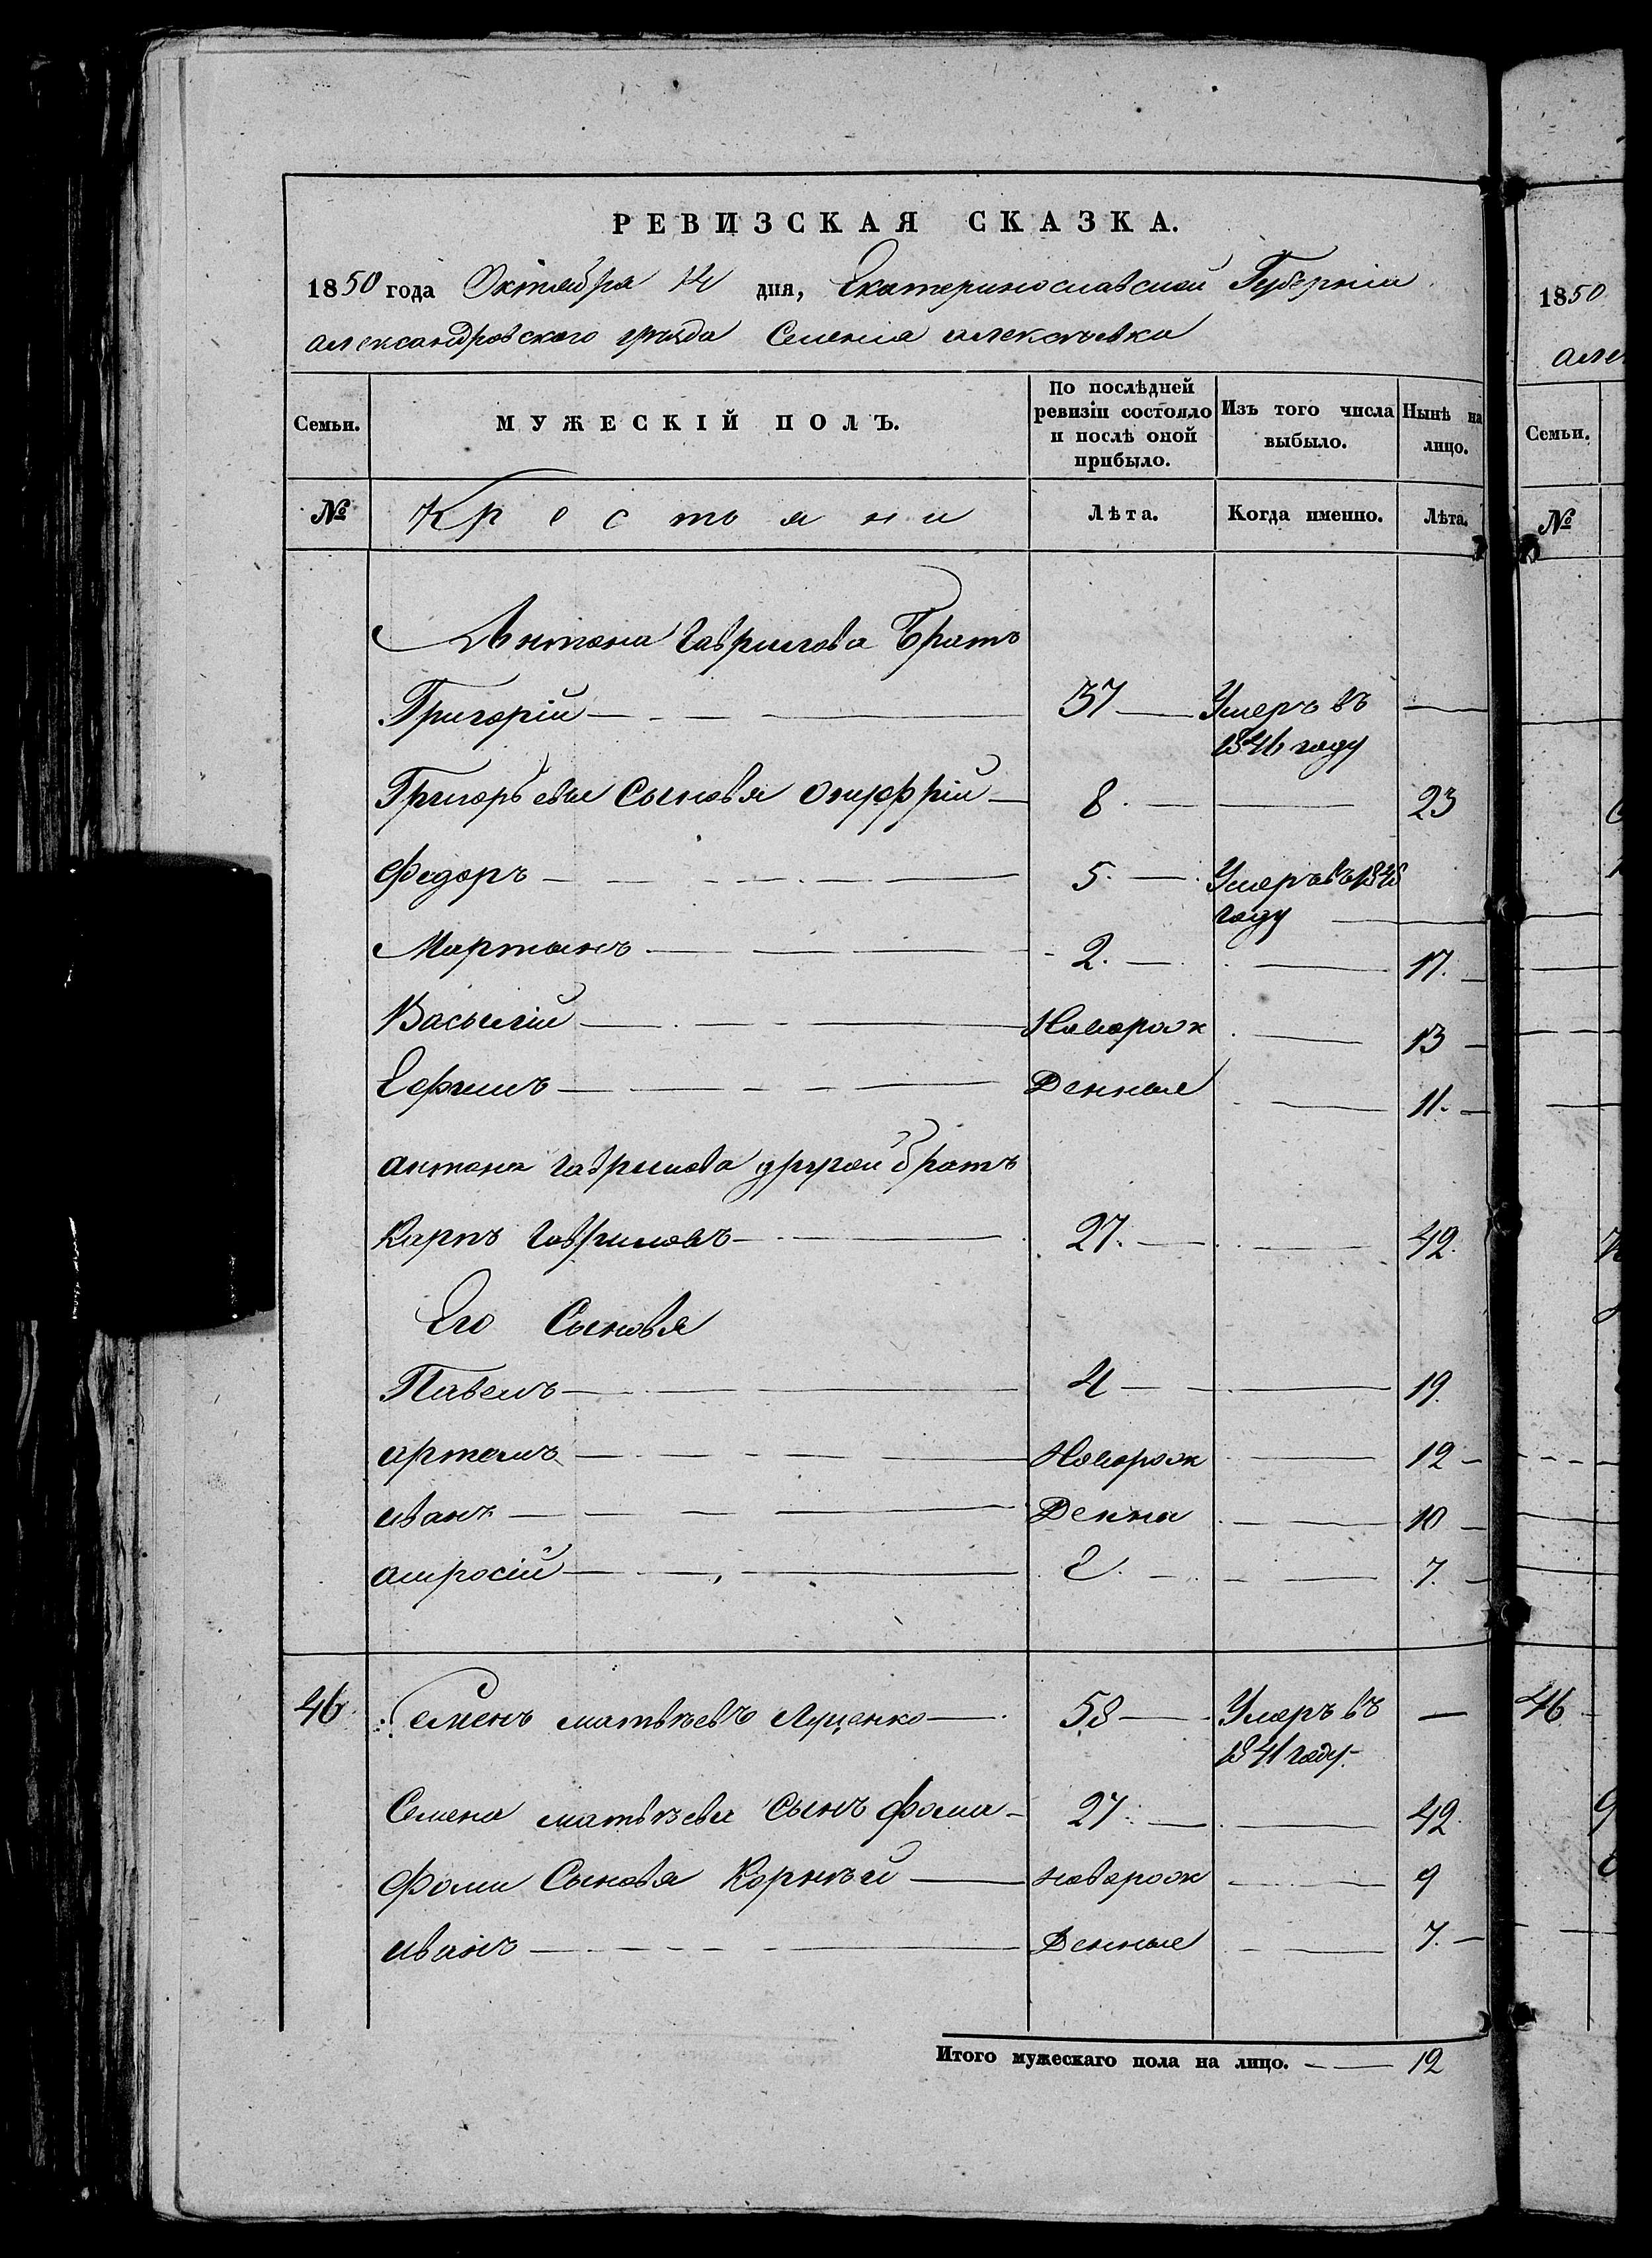 РЕВИЗСКАЯ СКАЗКА.
1850 года Октября 14 дня, Екатеринославской Губерніи
Александровского уѣзда Селенія Алексѣевка
Семьи. МУЖЕСКІЙ ПОЛЪ. По послѣдней ревизіи состояло и послѣ оной прибыло. Изъ того числа выбыло. Нынѣ на лицо.
№ Крестьяни Лѣта. Когда именно. Лѣта.
Антона Гаврилова Братъ
Григорій 37 Умеръ въ
1846 году
Григорьевы Сыновья Онуфрій 8 23
Федоръ 5 Умеръ въ
году
Мартынъ 2. 17.
Василій Новорож 13
Ефимъ Денные 11.
Антона Гаврилова другой братъ
Карпъ Гавриловъ 27. 42.
Его Сыновья
Павелъ 4 19.
Артемъ Новорож 12
Иванъ Денны 10
Амросій 7.
46 Семенъ Матвѣевъ Луценко 58 Умеръ въ
1841 году.
Семена Матвѣева Сынъ Фома 27. 42
Фомы Сыновья Корнѣй новорож 9
Иванъ Денные 7.
Итого мужескаго пола на лицо. 12
1850
Семьи.
№
46